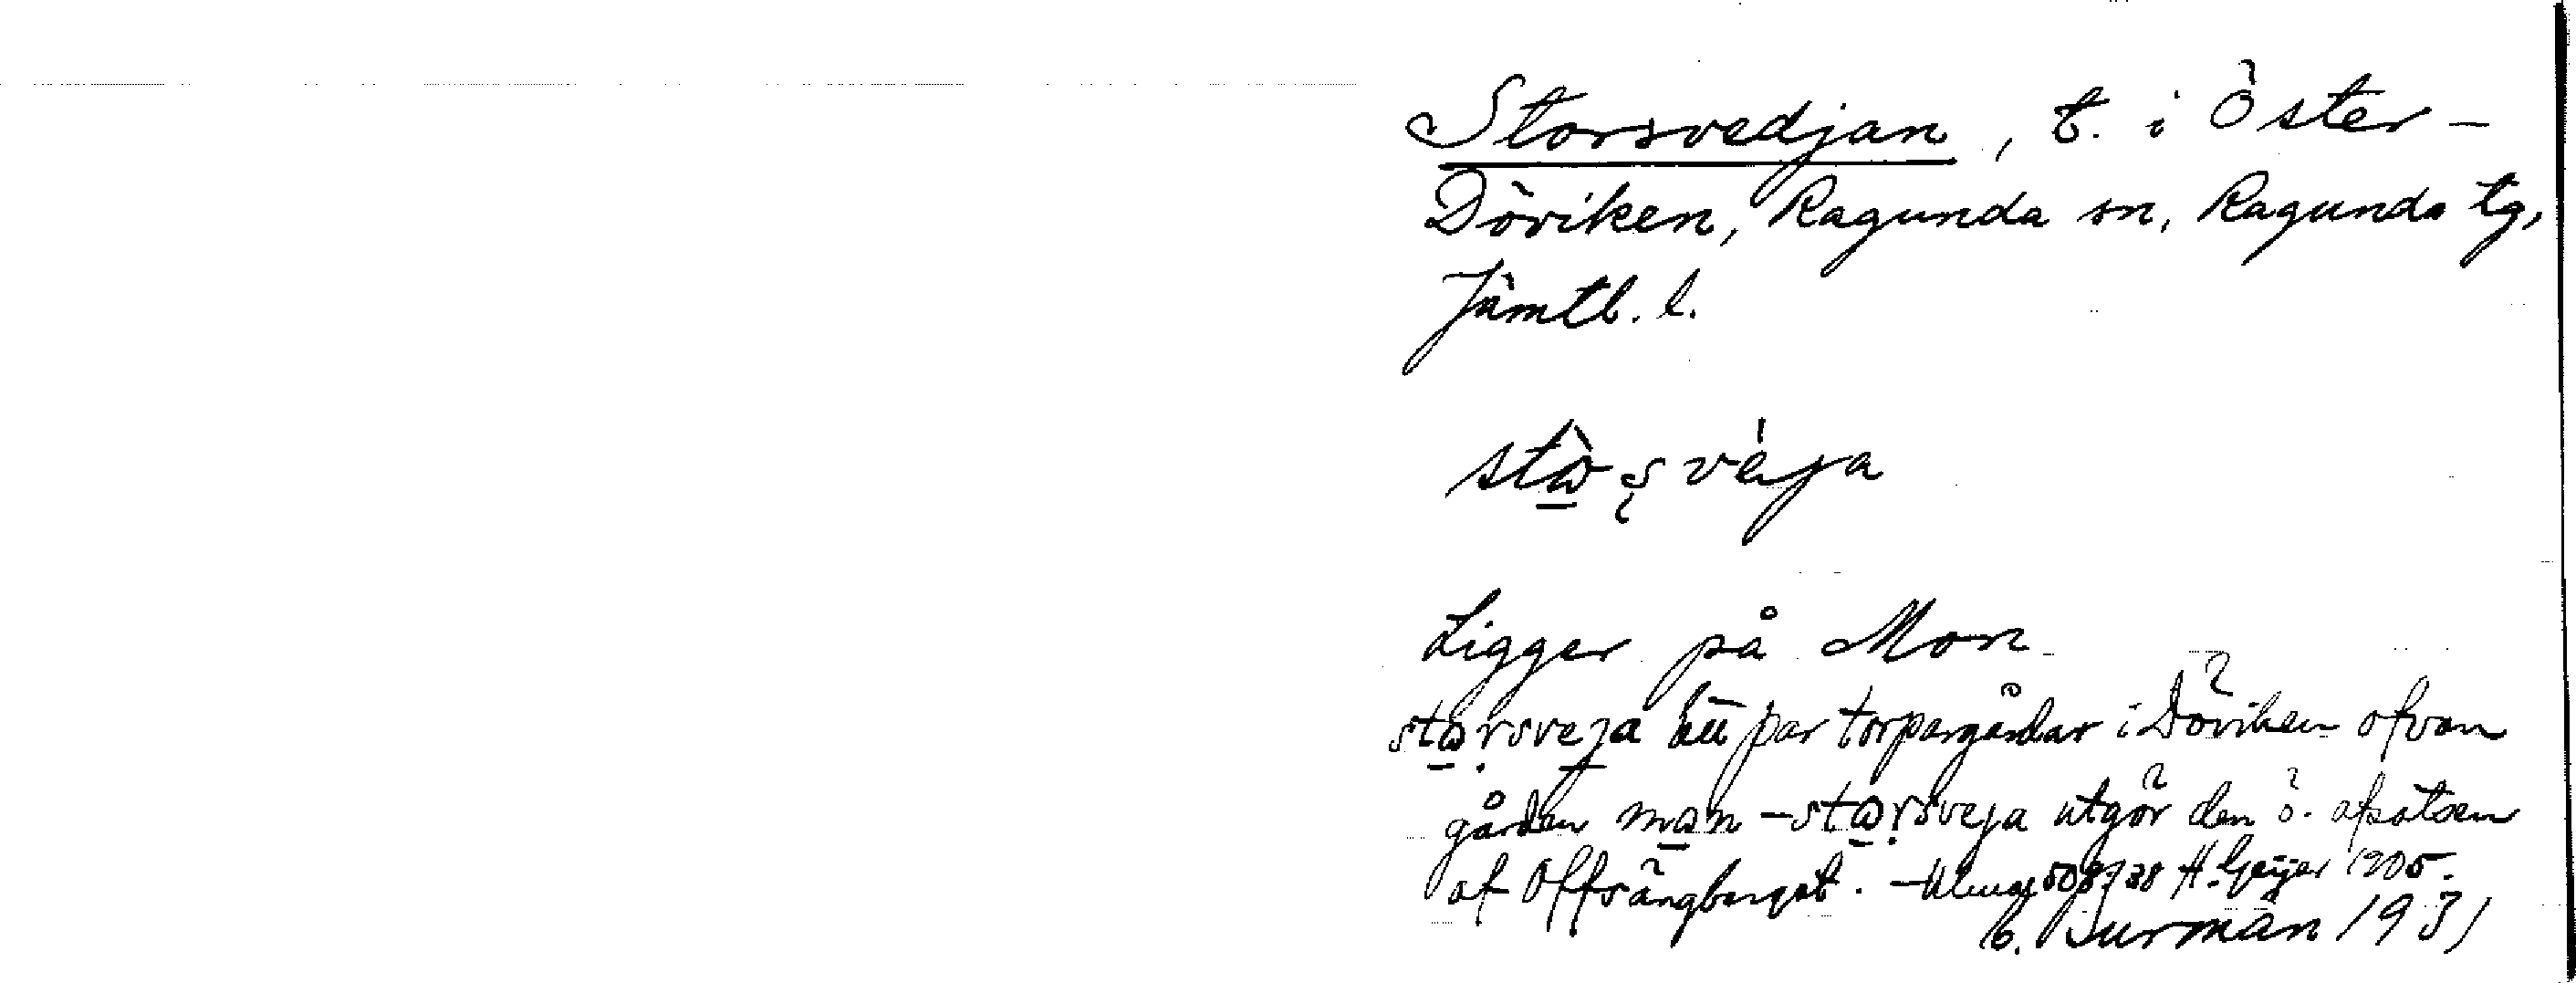 Storsvedjan, t. i Öster-
Döviken, Ragunda sn, Ragunda tg,
Jämtl. l.
stὼʂvèja
Ligger på Mon
stωṛsveja ett par torpargårdar i Döviken ofvan
gården mωn - stωṛsveja utgör den ö. afsatsen
af Offsängberget. - H. Geijer 1905.
B. Burman 1931